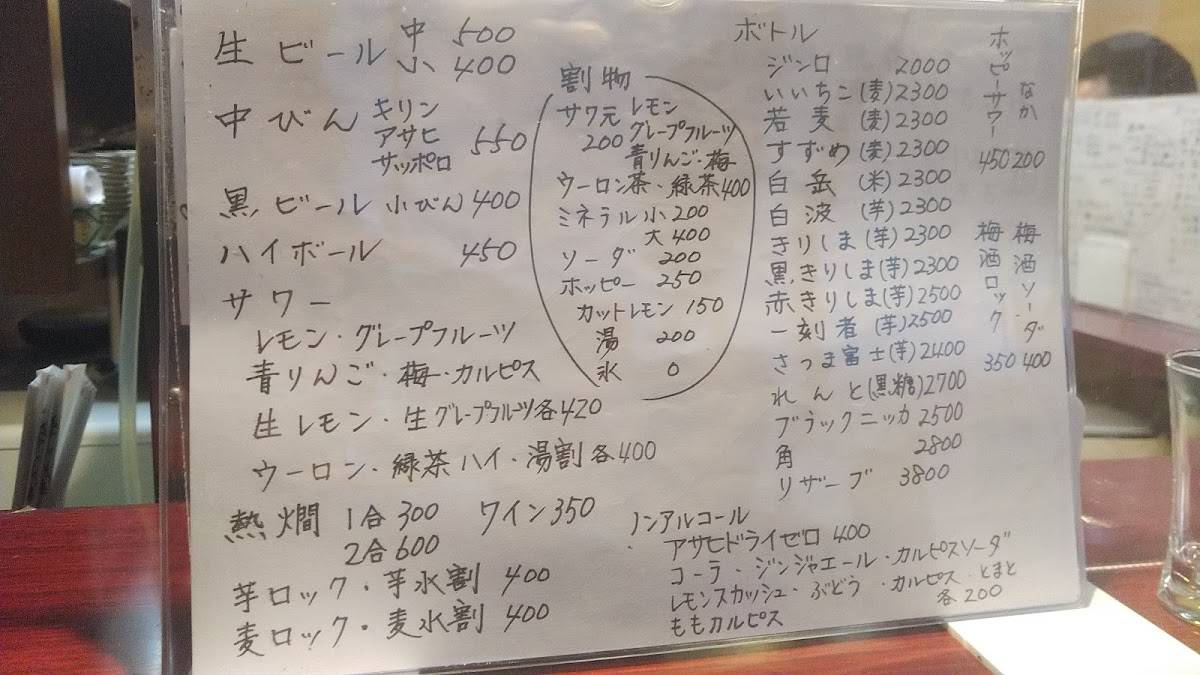 生ビール 中 500
小 400
中びん キリン
アサヒ 550
サッポロ
黒ビール 小びん 400
ハイボール 450
サワー
レモン・グレープフルーツ
青りんご・梅・カルピス
生レモン・生グレープフルーツ各420
ウーロン・緑茶ハイ・湯割各400
熱燗 1合300 ワイン350
2合600
芋ロック・芋水割 400
麦ロック・麦水割 400
割物
サワ元 レモン
200 グレープフルーツ
青りんご・梅
ウーロン茶・緑茶400
ミネラル 小 200
大 400
ソーダ 200
ホッピー 250
カットレモン 150
湯 200
氷 0
ボトル
ジンロ 2000
いいちこ(麦)2300
若麦 (麦)2300
すずめ(麦)2300
白岳 (米)2300
白波 (芋)2300
きりしま(芋)2300
黒きりしま(芋)2300
赤きりしま(芋)2500
一刻者 (芋)2500
さつま富士(芋)2400
れんと(黒糖)2700
ブラックニッカ 2500
角 2800
リザーブ 3800
ホッピーサワー 450
なか 200
梅酒ロック 350
梅酒ソーダ 400
ノンアルコール
アサヒドライゼロ 400
コーラ・ジンジャエール・カルピスソーダ
レモンスカッシュ・ぶどう・カルピス・とまと
ももカルピス 各200